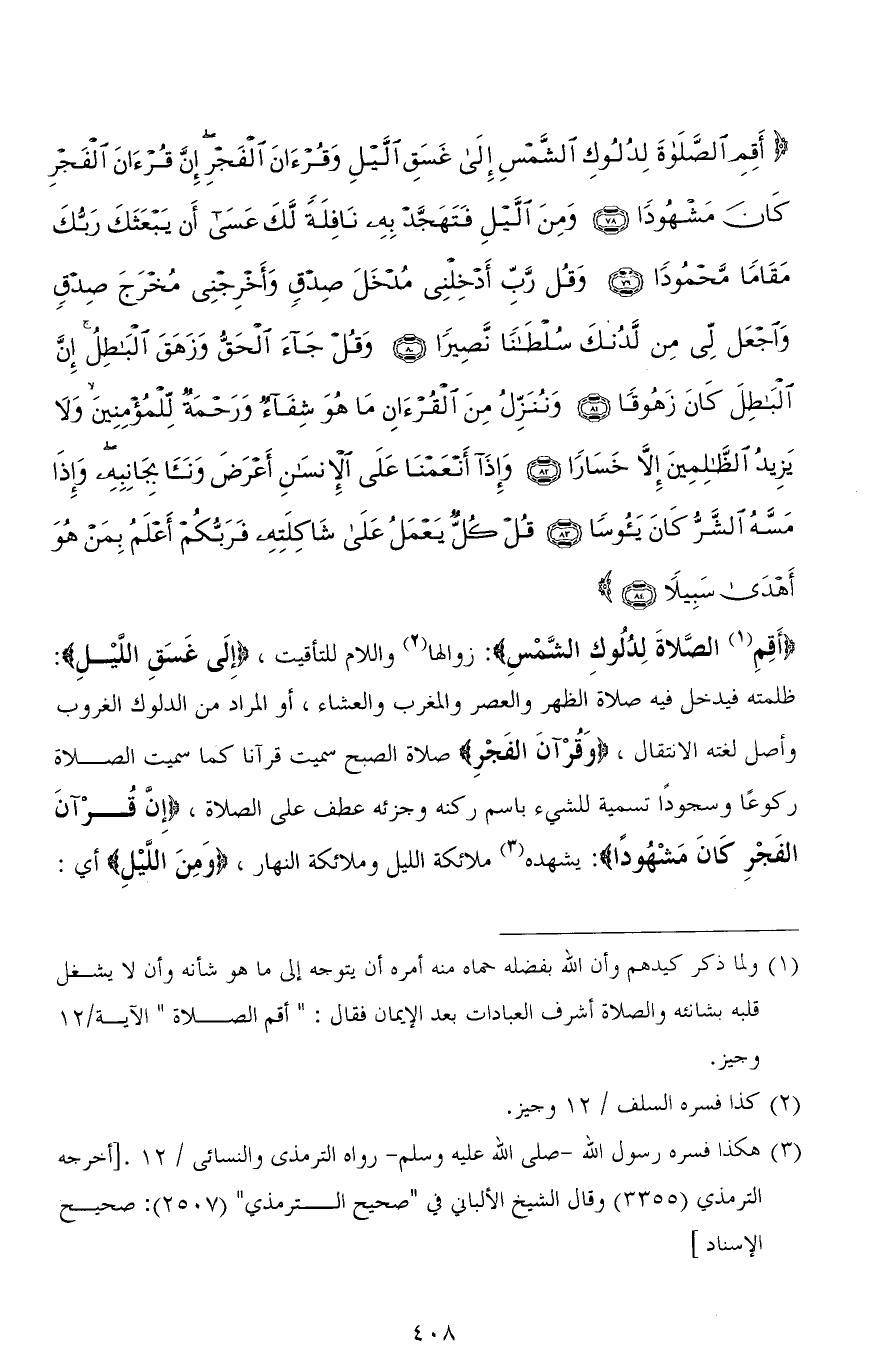 ﴿ أَقِمِ ٱلصَّلَوٰةَ لِدُلُوكِ ٱلشَّمْسِ إِلَىٰ غَسَقِ ٱلَّيْلِ وَقُرْءَانَ ٱلْفَجْرِ ۖ إِنَّ قُرْءَانَ ٱلْفَجْرِ
كَانَ مَشْهُودًا ﴿٧٨﴾ وَمِنَ ٱلَّيْلِ فَتَهَجَّدْ بِهِۦ نَافِلَةً لَّكَ عَسَىٰٓ أَن يَبْعَثَكَ رَبُّكَ
مَقَامًا مَّحْمُودًا ﴿٧٩﴾ وَقُل رَّبِّ أَدْخِلْنِى مُدْخَلَ صِدْقٍ وَأَخْرِجْنِى مُخْرَجَ صِدْقٍ
وَٱجْعَل لِّى مِن لَّدُنكَ سُلْطَـٰنًا نَّصِيرًا ﴿٨٠﴾ وَقُلْ جَآءَ ٱلْحَقُّ وَزَهَقَ ٱلْبَـٰطِلُ ۚ إِنَّ
ٱلْبَـٰطِلَ كَانَ زَهُوقًا ﴿٨١﴾ وَنُنَزِّلُ مِنَ ٱلْقُرْءَانِ مَا هُوَ شِفَآءٌ وَرَحْمَةٌ لِّلْمُؤْمِنِينَ ۙ وَلَا
يَزِيدُ ٱلظَّـٰلِمِينَ إِلَّا خَسَارًا ﴿٨٢﴾ وَإِذَآ أَنْعَمْنَا عَلَى ٱلْإِنسَـٰنِ أَعْرَضَ وَنَـَٔا بِجَانِبِهِۦ ۖ وَإِذَا
مَسَّهُ ٱلشَّرُّ كَانَ يَـُٔوسًا ﴿٨٣﴾ قُلْ كُلٌّ يَعْمَلُ عَلَىٰ شَاكِلَتِهِۦ فَرَبُّكُمْ أَعْلَمُ بِمَنْ هُوَ
أَهْدَىٰ سَبِيلًا ﴿٨٤﴾ ﴾
﴿أَقِمِ(١) الصَّلاةَ لِدُلُوكِ الشَّمْسِ﴾: زوالها(٢) واللام للتأقيت ، ﴿إِلَى غَسَقِ اللَّيْلِ﴾:
ظلمته فيدخل فيه صلاة الظهر والعصر والمغرب والعشاء ، أو المراد من الدلوك الغروب
وأصل لغته الانتقال ، ﴿وَقُرْآنَ الفَجْرِ﴾ صلاة الصبح سميت قرآنا كما سميت الصلاة
ركوعًا وسجودًا تسمية للشيء باسم ركنه وجزئه عطف على الصلاة ، ﴿إِنَّ قُرْآنَ
الفَجْرِ كَانَ مَشْهُودًا﴾: يشهده(٣) ملائكة الليل وملائكة النهار ، ﴿وَمِنَ اللَّيْلِ﴾ أي :
(١) ولما ذكر كيدهم وأن الله بفضله حماه منه أمره أن يتوجه إلى ما هو شأنه وأن لا يشغل
قلبه بشانئه والصلاة أشرف العبادات بعد الإيمان فقال : " أقم الصلاة " الآية/١٢
وجيز.
(٢) كذا فسره السلف / ١٢ وجيز.
(٣) هكذا فسره رسول الله -صلى الله عليه وسلم- رواه الترمذى والنسائى / ١٢ .[أخرجه
الترمذي (٣٣٥٥) وقال الشيخ الألباني في "صحيح الترمذي" (٢٥٠٧): صحيح
الإسناد ]
٤٠٨